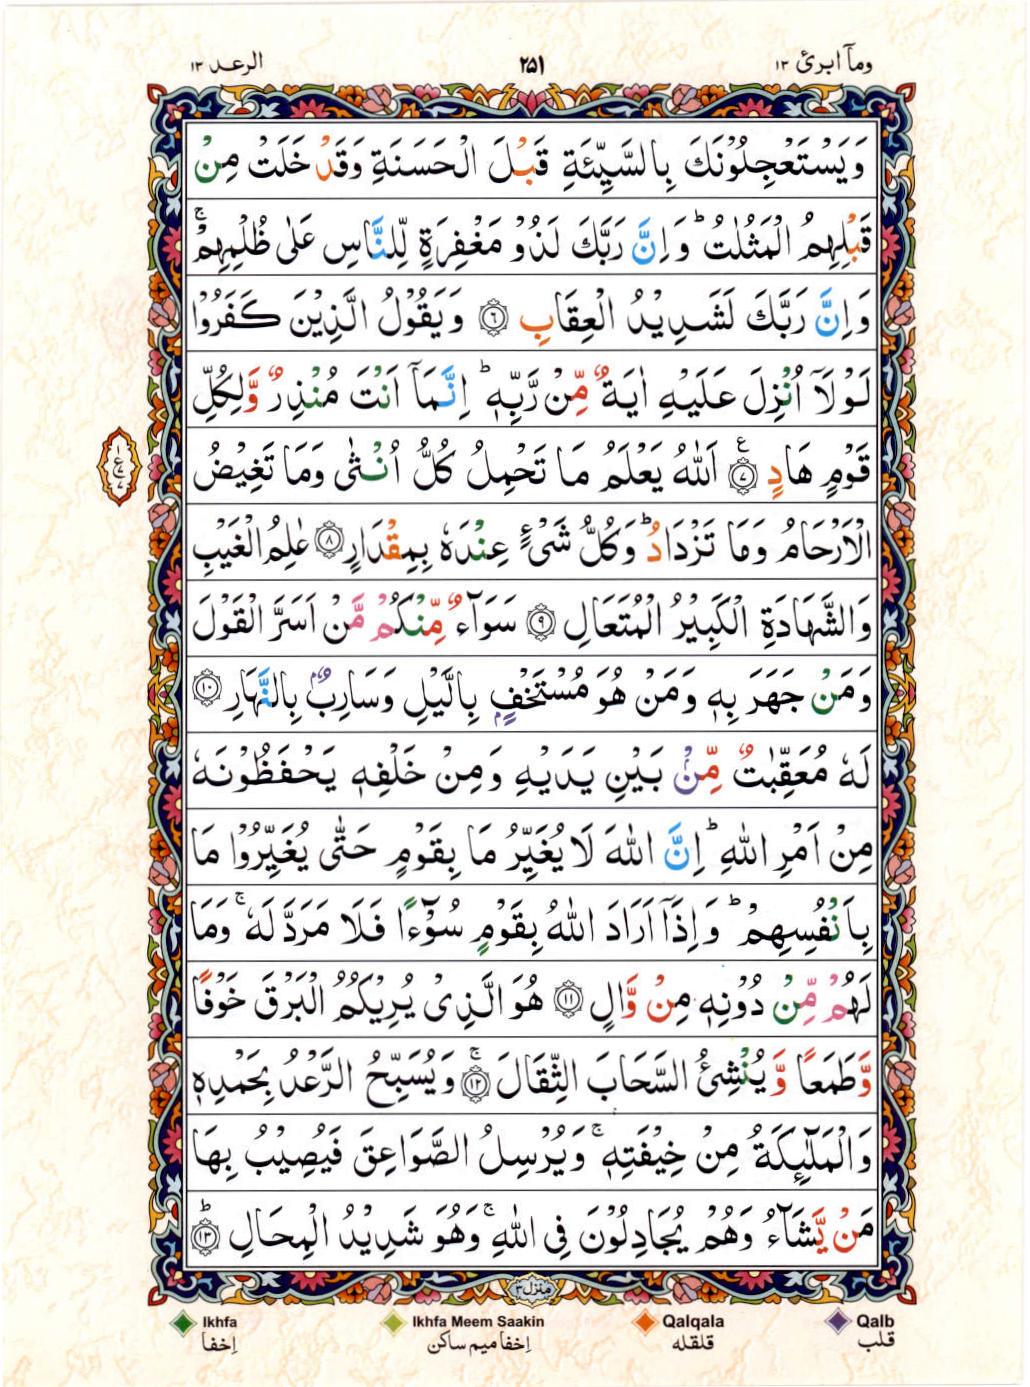 وماۤ ابرئ ١٣
٢٥١
الرعد ١٣
وَيَسْتَعْجِلُوْنَكَ بِالسَّيِّئَةِ قَبْلَ الْحَسَنَةِ وَقَدْ خَلَتْ مِنْ
قَبْلِهِمُ الْمَثُلٰتُ ؕ وَاِنَّ رَبَّكَ لَذُوْ مَغْفِرَةٍ لِّلنَّاسِ عَلٰى ظُلْمِهِمْ ۚ
وَاِنَّ رَبَّكَ لَشَدِيْدُ الْعِقَابِ ﴿٦﴾ وَيَقُوْلُ الَّذِيْنَ كَفَرُوْا
لَوْلَاۤ اُنْزِلَ عَلَيْهِ اٰيَةٌ مِّنْ رَّبِّهٖ ؕ اِنَّمَاۤ اَنْتَ مُنْذِرٌ وَّلِكُلِّ
قَوْمٍ هَادٍ ﴿٧﴾ ع اَللّٰهُ يَعْلَمُ مَا تَحْمِلُ كُلُّ اُنْثٰى وَمَا تَغِيْضُ
الْاَرْحَامُ وَمَا تَزْدَادُ ؕ وَكُلُّ شَىْءٍ عِنْدَهٗ بِمِقْدَارٍ ﴿٨﴾ عٰلِمُ الْغَيْبِ
وَالشَّهَادَةِ الْكَبِيْرُ الْمُتَعَالِ ﴿٩﴾ سَوَآءٌ مِّنْكُمْ مَّنْ اَسَرَّ الْقَوْلَ
وَمَنْ جَهَرَ بِهٖ وَمَنْ هُوَ مُسْتَخْفٍۢ بِالَّيْلِ وَسَارِبٌۢ بِالنَّهَارِ ﴿١٠﴾
لَهٗ مُعَقِّبٰتٌ مِّنْۢ بَيْنِ يَدَيْهِ وَمِنْ خَلْفِهٖ يَحْفَظُوْنَهٗ
مِنْ اَمْرِ اللّٰهِ ؕ اِنَّ اللّٰهَ لَا يُغَيِّرُ مَا بِقَوْمٍ حَتّٰى يُغَيِّرُوْا مَا
بِاَنْفُسِهِمْ ؕ وَاِذَاۤ اَرَادَ اللّٰهُ بِقَوْمٍ سُوْۤءًا فَلَا مَرَدَّ لَهٗ ۚ وَمَا
لَهُمْ مِّنْ دُوْنِهٖ مِنْ وَّالٍ ﴿١١﴾ هُوَ الَّذِىْ يُرِيْكُمُ الْبَرْقَ خَوْفًا
وَّطَمَعًا وَّيُنْشِئُ السَّحَابَ الثِّقَالَ ۚ ﴿١٢﴾ وَيُسَبِّحُ الرَّعْدُ بِحَمْدِهٖ
وَالْمَلٰٓئِكَةُ مِنْ خِيْفَتِهٖ ۚ وَيُرْسِلُ الصَّوَاعِقَ فَيُصِيْبُ بِهَا
مَنْ يَّشَآءُ وَهُمْ يُجَادِلُوْنَ فِى اللّٰهِ ۚ وَهُوَ شَدِيْدُ الْمِحَالِ ؕ ﴿١٣﴾
منزل ٣
Ikhfa
Ikhfa Meem Saakin
Qalqala
Qalb
اِخفا
اِخفا میم ساکن
قلقله
قلب